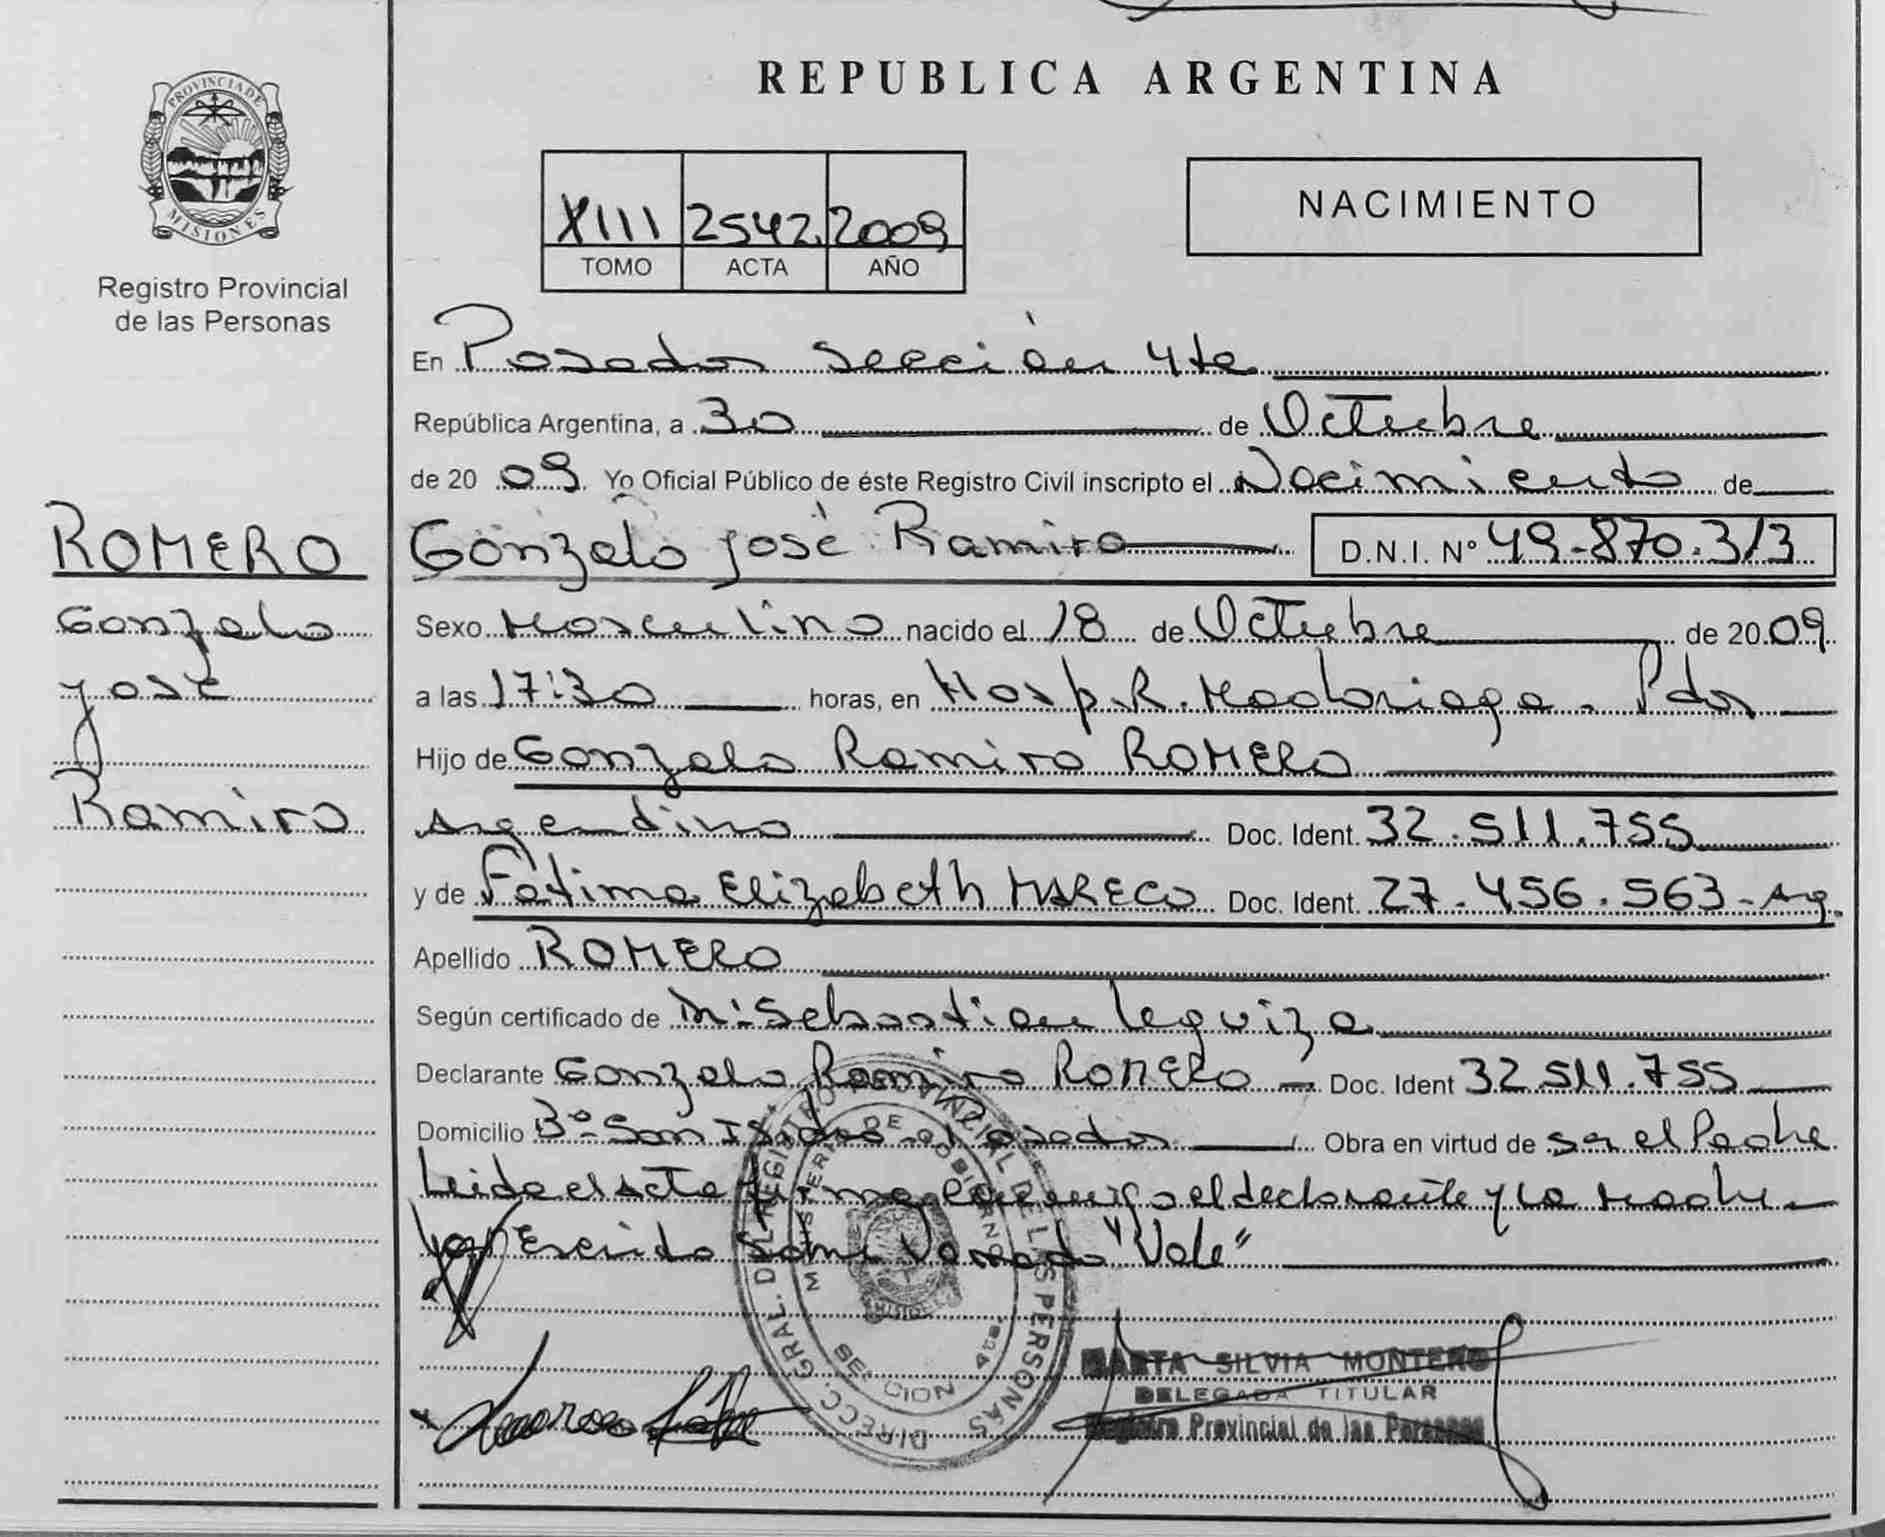 REPUBLICA ARGENTINA
PROVINCIA DE
MISIONES
Registro Provincial
de las Personas
XIII 2542 2009
TOMO ACTA AÑO
NACIMIENTO
En Posadas sección 4ta
República Argentina, a 30 de Octubre
de 20 09 Yo Oficial Público de éste Registro Civil inscripto el Nacimiento de
ROMERO
Gonzalo
José
Ramiro
Gonzalo José Ramiro D.N.I. Nº 49-870.313
Sexo Masculino nacido el 18 de Octubre de 20 09
a las 17:30 horas, en Hosp. R. Madariaga - Pdas
Hijo de Gonzalo Ramiro ROMERO
Argentino Doc. Ident. 32.511.755
y de Fátima Elizabeth MARECO Doc. Ident. 27.456.563-Arg.
Apellido ROMERO
Según certificado de Sebastian Leguiza
Declarante Gonzalo Ramiro ROMERO Doc. Ident 32.511.755
Domicilio Bº San Isidro - Posadas Obra en virtud de ser el Padre
Leida el acta firma conmigo el declarante y la madre
Escrito sobre "Vale"
DIRECC. GRAL. DEL REGISTRO PROVINCIAL DE LAS PERSONAS
MINISTERIO DE GOBIERNO
MISIONES
SECCION 4ta
MARTA SILVIA MONTERO
DELEGADA TITULAR
Registro Provincial de las Personas